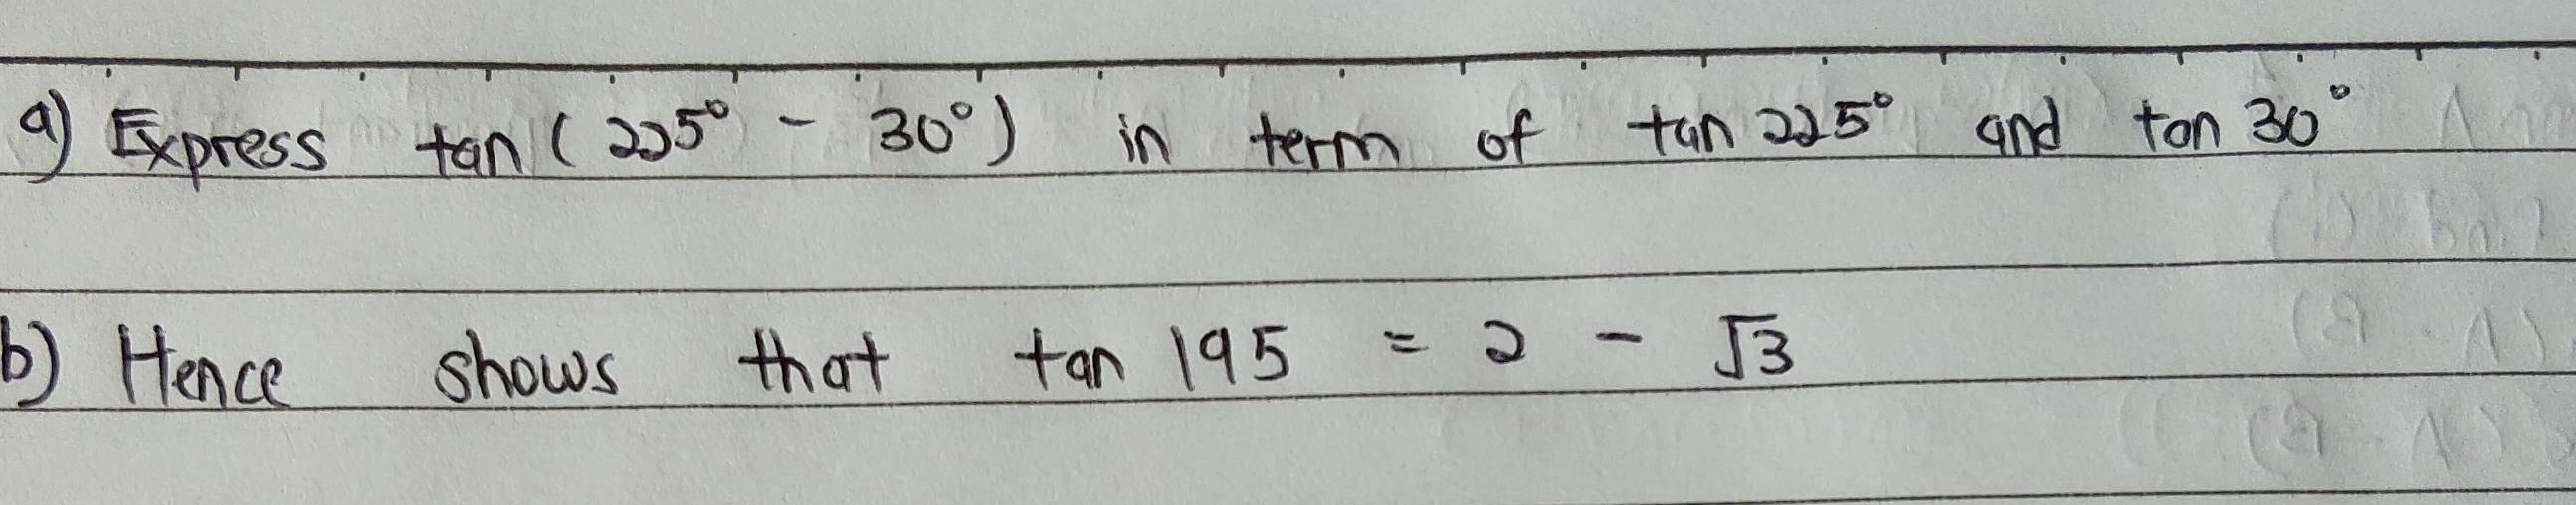 a) Express tan (225° - 30°) in term of tan 225° and tan 30°
b) Hence shows that tan 195 = 2 - √3